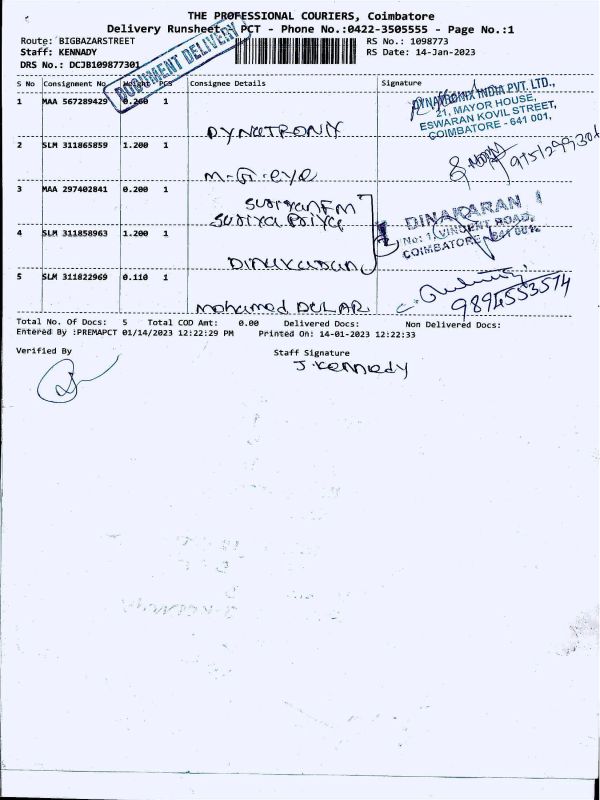 THE PROFESSIONAL COURIERS, Coimbatore
Delivery Runsheet, PCT - Phone No.:0422-3505555 - Page No.:1
Route: BIGBAZARSTREET
RS No.: 1098773
Staff: KENNADY
RS Date: 14-Jan-2023
DRS No.: DCJB109877301
DOCUMENT DELIVERY
S No Consignment No Weight PCS Consignee Details Signature
1 MAA 567289429 0.260 1
DYNATRONIX INDIA PVT. LTD.,
21, MAYOR HOUSE,
ESWARAN KOVIL STREET,
COIMBATORE - 641 001,
DYNATRONIX
2 SLM 311865859 1.200 1
M-G-eye
3 MAA 297402841 0.200 1
suriyanFM
suriya Priya
DINAKARAN
No: 1, VINCENT ROAD,
COIMBATORE - 641 001.
4 SLM 311858963 1.200 1
Dinakaran
5 SLM 311822969 0.110 1
mohamed DULAR
9894553574
Total No. Of Docs: 5 Total COD Amt: 0.00 Delivered Docs: Non Delivered Docs:
Entered By :PREMAPCT 01/14/2023 12:22:29 PM Printed On: 14-01-2023 12:22:33
Verified By Staff Signature
J. Kennedy